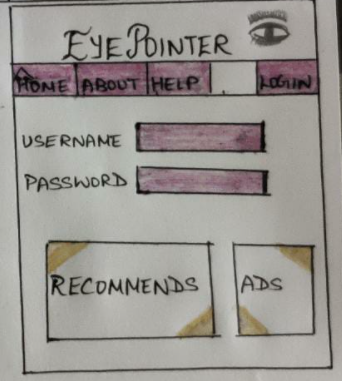 EYEPOINTER
HOME ABOUT HELP LOGIN
USERNAME
PASSWORD
RECOMMENDS ADS